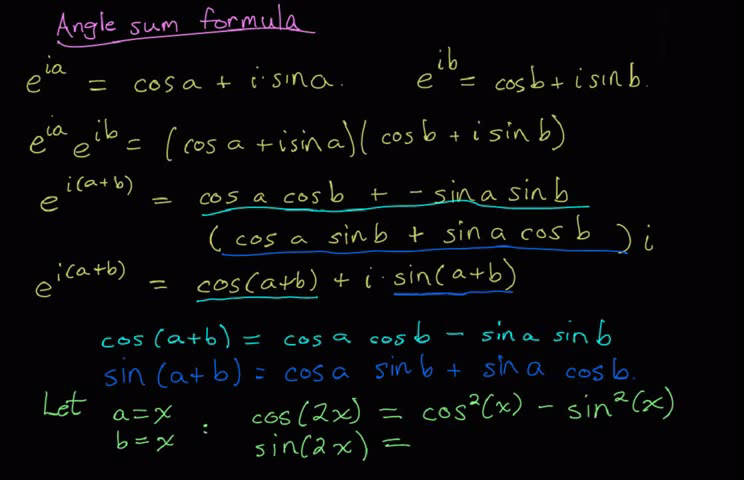 Angle sum formula
e^{ia} = cos a + i·sin a. e^{ib} = cos b + i sin b.
e^{ia} e^{ib} = (cos a + i sin a)(cos b + i sin b)
e^{i(a+b)} = cos a cos b + - sin a sin b
(cos a sin b + sin a cos b) i
e^{i(a+b)} = cos(a+b) + i·sin(a+b)
cos(a+b) = cos a cos b - sin a sin b
sin(a+b) = cos a sin b + sin a cos b.
Let a=x : cos(2x) = cos²(x) - sin²(x)
b=x sin(2x) =